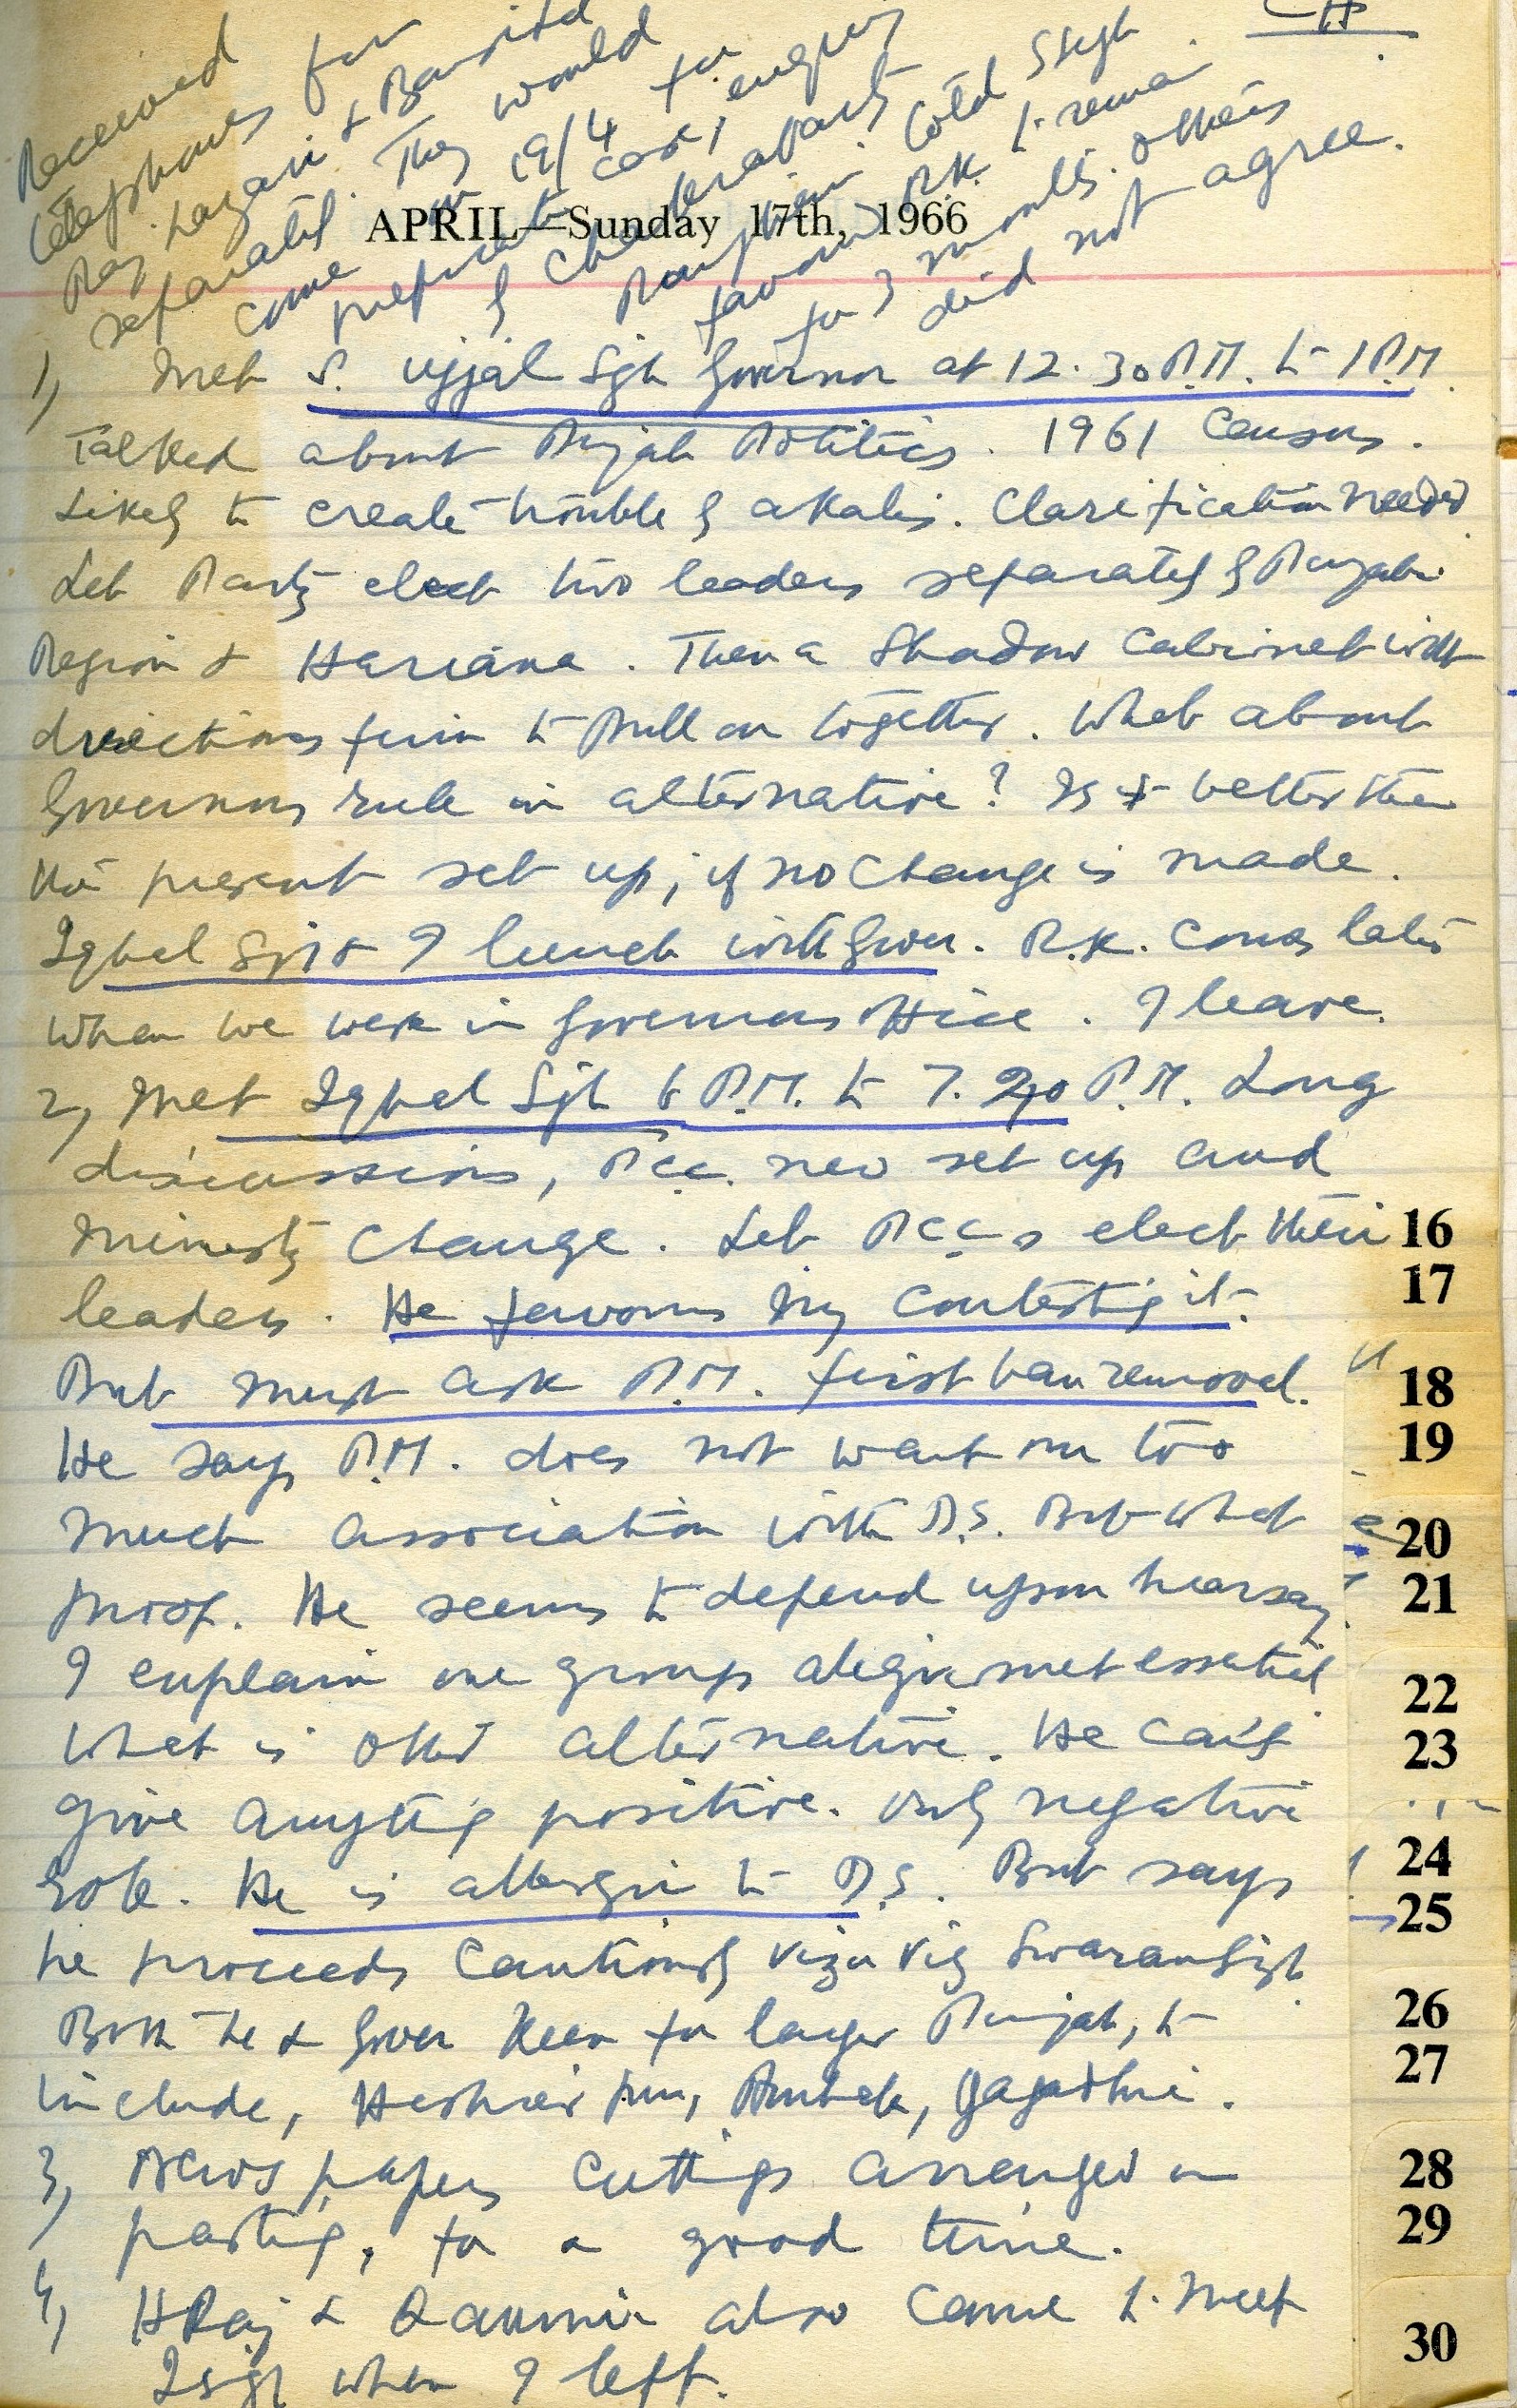 CH
Received
telephones for
Raj & Bansi
separately. They would
come on 19/4 for
present case, enquiry
& Chakravarti
Col
favours R.K. to remain
for 3 months. Others
did not agree.
APRIL—Sunday 17th, 1966
1) Met S. Ujjal Sgh Governor at 12.30 P.M. to 1 P.M.
Talked about Punjab Politics. 1961 Census.
Likely to create trouble by Akalis. Clarification needed
Let Party elect two leaders separately by Punjabi
Region & Hariana. Then a Shadow Cabinet with
directions firm to Pull on together. What about
Governors rule in alternative? Is it better than
the present set up, if no change is made.
Iqbal Sgh & I lunch with Gover. R.K. Comes later
when we were in Governors office. I leave.
2) Met Iqbal Sgh 6 P.M. to 7.20 P.M. Long
discussions, P.C.C. new set up and
Ministry Change. Let P.C.C.s elect their
leaders. He favours my Contesting it.
But must ask P.M. first ban removal.
He says P.M. does not want on too
much association with D.S. But what
proof. He seems to depend upon hearsay
I explain one group alignment essential
What is other alternative. He can't
give anything positive. Only negative
role. He is allergic to D.S. But says
he proceeds Cautiously viz a viz Swaran Sigh
Both he & Gover Keen for larger Punjab, to
include, Ambala, Jagadhri.
3) News papers Cuttings arranged in
pasting, for a good time.
4) HRaj & also Came to meet
I Sigh when I left.
16
17
18
19
20
21
22
23
24
25
26
27
28
29
30